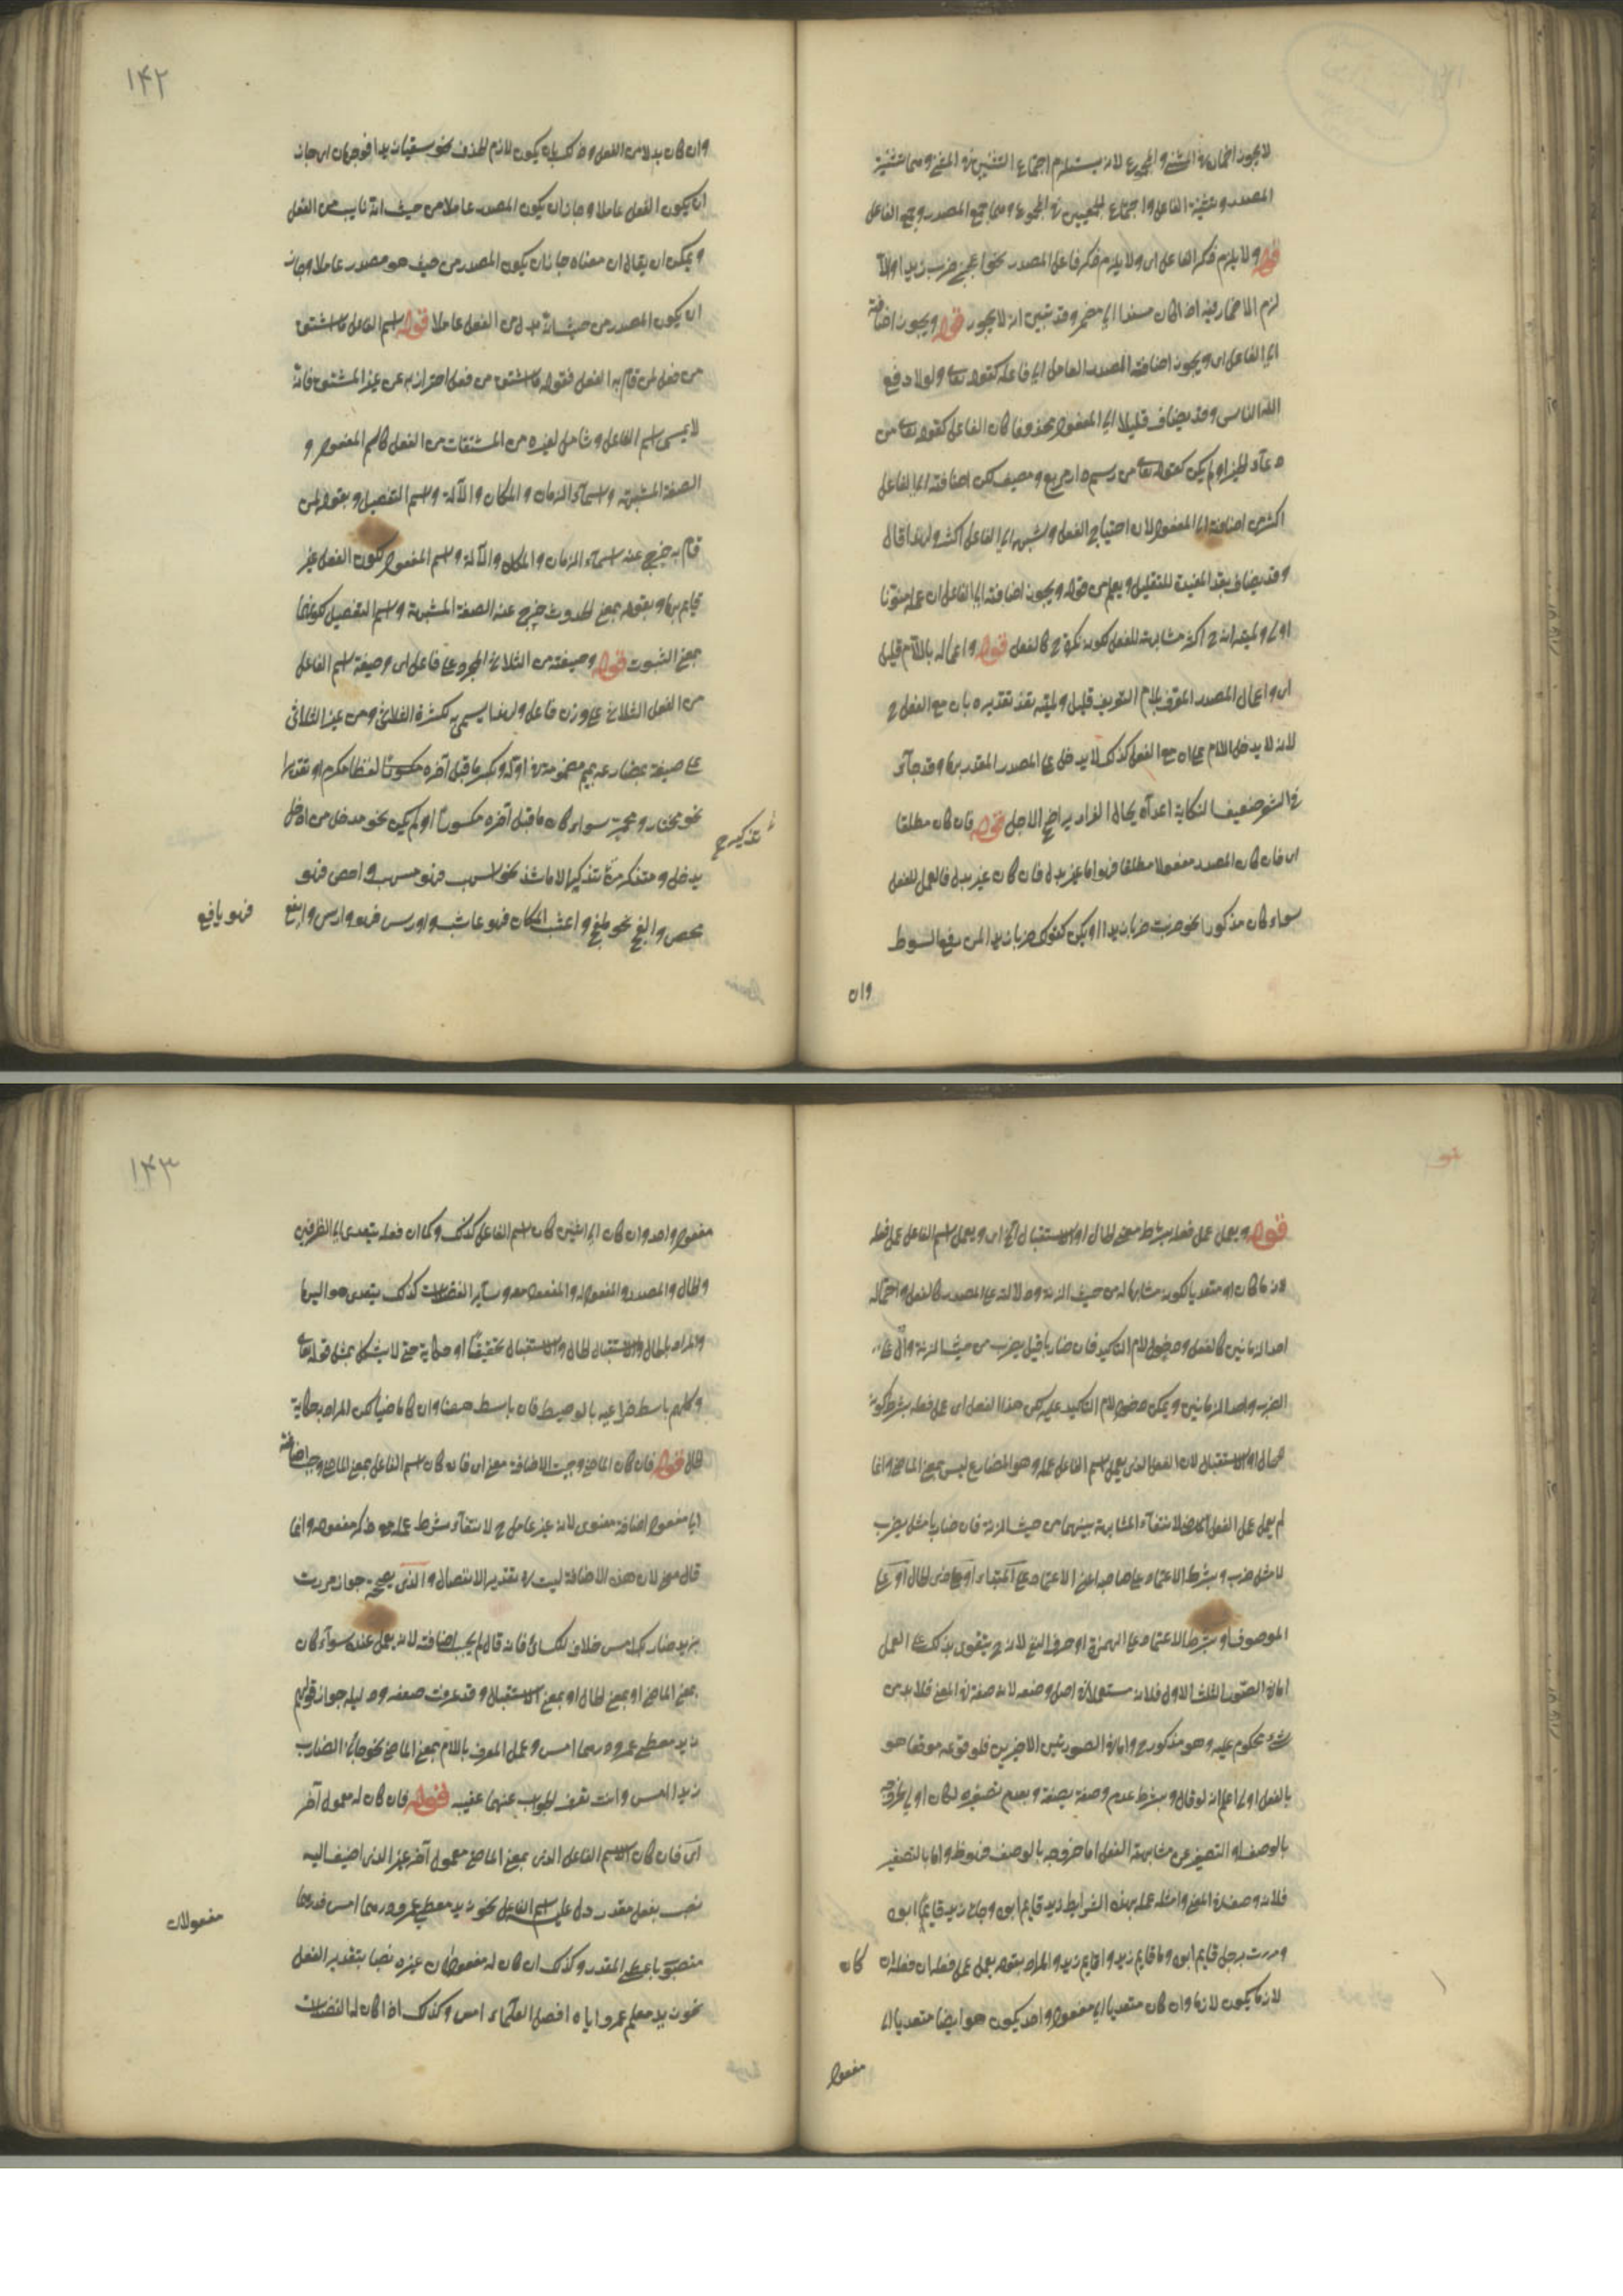 لا يجوز اضماره في المثنى والمجموع لانه يستلزم اجتماع التثنيتين في المثنى وهما تثنية
المصدر وتثنية الفاعل واجتماع الجمعيين في المجموع وهما جمع المصدر وجمع الفاعل
قوله ولا يلزم ذكر الفاعل اى ولا يلزم ذكر فاعل المصدر نحو اعجبنى ضرب زيدا والا
لزم الاضمار فيه اذا كان مسندا الى مضمر وقد تبين انه لا يجوز قوله ويجوز اضافته
الى الفاعل اى ويجوز اضافة المصدر العامل الى فاعله كقوله تعالى ولولا دفع
الله الناس وقد يضاف قليلا الى المفعول محذوفا كان الفاعل كقوله تعالى من
دعاء الخير او لم يكن كقوله من رسم دار مربع ومصيف لكن اضافته الى الفاعل
اكثر من اضافته الى المفعول لان احتياج الفعل وشبهه الى الفاعل اكثر ولهذا قال
وقد يضاف بقد المفيدة للتقليل ويعلم من قوله ويجوز اضافته الى الفاعل ان عمله منونا
اولى ولميته انه ح اكثر مشابهة للفعل لكونه نكرة ح كالفعل قوله واعماله باللام قليل
اى واعمال المصدر المعرف بلام التعريف قليل ولميته تعذر تقديره بان مع الفعل ح
لانه لا يدخل اللام على ان مع الفعل كذلك لا يدخل على المصدر المقدر بها وقد جاء
في الشعر ضعيف النكاية اعداءه يخال الفرار يراخى الاجل قوله فان كان مطلقا
اى فان كان المصدر مفعولا مطلقا فهو اما غير بدل فان كان غير بدل فالعمل للفعل
سواء كان مذكورا نحو ضربت ضربا زيدا او لم يكن كقولك ضربا زيدا لمن رفع السوط
وان
١٤٢
وان كان بدلا من الفعل وذلك بان يكون لازم الحذف نحو سقيا زيدا فوجهان اى جاز
ان يكون الفعل عاملا وجاز ان يكون المصدر عاملا من حيث انه نايب من الفعل
ويمكن ان يقال ان معناه جاز ان يكون المصدر من حيث هو مصدر عاملا وجاز
ان يكون المصدر من حيث انه بدل من الفعل عاملا قوله اسم الفاعل ما اشتق
من فعل لمن قام به الفعل فقوله ما اشتق من فعل احتراز به عن غير المشتق فانه
لا يسمى اسم الفاعل وشامل لغيره من المشتقات من الفعل كاسم المفعول و
الصفة المشبهة واسماء الزمان والمكان والآلة واسم التفضيل وبقوله لمن
قام به خرج عنه اسماء الزمان والمكان والآلة واسم المفعول لكون الفعل غير
قايم بها وبقوله بمعنى الحدوث خرج عنه الصفة المشبهة واسم التفضيل لكونهما
بمعنى الثبوت قوله وصيغته من الثلاثى المجرد على فاعل اى وصيغة اسم الفاعل
من الفعل الثلاثى على وزن فاعل ولهذا يسمى به لكثرة الثلاثى ومن غير الثلاثى
على صيغة مضارعه بميم مضمومة في اوله وبكسر ما قبل آخره مكسورا لفظا مكرم او تقديرا
نحو مختار ومحمر سواء كان ما قبل آخره مكسورا او لم يكن نحو مدخل من ادخل
تذكيرح
يدخل ومتذكر من تذكر الا ما شذ نحو اسهب فهو مسهب واحصن فهو
محصن والفج نحو ملفج واعشب المكان فهو عاشب واورس فهو وارس وايفع
فهو يافع
قوله ويعمل عمل فعله بشرط معنى الحال او الاستقبال الخ اى ويعمل اسم الفاعل عمل فعله
لازما كان او متعديا لكونه مشابها له من حيث الزنة ودلالته على المصدر كالفعل واحتماله
احد الزمانين كالفعل ودخول لام التاكيد فان ضاربا قبل يضرب من حيث الزنة والدلالة على
الضرب واحد الزمانين ويمكن دخول لام التاكيد عليه لكن هذا الفعل اى عمل فعله بشرط كونه
للحال او الاستقبال لان الفعل الذى يعمل اسم الفاعل عمله وهو المضارع ليس بمعنى الماضى وانما
لم يعمل عمل الفعل الماضى لانتفاء المشابهة بينهما من حيث الزنة فان ضاربا مثل يضرب
لا مثل ضرب وبشرط الاعتماد على صاحبه اعنى الاعتماد على المبتداء او على ذى الحال او على
الموصوف او بشرط الاعتماد على الهمزة او حرف النفى لانه ح يتقوى بذلك على العمل
اما في الصور الثلث الاول فلانه مستعمل في اصل وضعه لانه صفة في المعنى فلا بد من
شىء محكوم عليه وهو مذكور ح واما في الصورتين الاخيرين فلوقوعه موقعا هو
بالفعل اولى اعلم انه لو قال وبشرط عدم وصفه بصفة وبعدم تصغيره لكان اولى لخروجه
بالوصف او التصغير عن مشابهة الفعل اما خروجه بالوصف فهو ظ واما بالتصغير
فلانه وصف في المعنى وامثلة عمله بهذه الشرايط زيد قايم ابوه وجاءنى زيد قايما ابوه
ومررت برجل قايم ابوه وما قايم زيد واقايم زيد والمراد بقوله يعمل عمل فعله ان فعله ان كان
لازما يكون لازما وان كان متعديا الى مفعول واحد يكون هو ايضا متعديا الى
مفعول
١٤٣
مفعول واحد وان كان الى اثنين كان اسم الفاعل كذلك وكما ان فعله يتعدى الى الظرفين
والحال والمصدر والمفعول له والمفعول معه وساير الفضلات كذلك يتعدى هو اليها
والمراد بالحال والاستقبال الحال والاستقبال تحقيقا او حكاية حتى لا يشكل بمثل قوله تعالى
وكلبهم باسط ذراعيه بالوصيد فان باسط ههنا وان كان ماضيا لكن المراد به حكاية
الحال قوله فان كان للماضى وجبت الاضافة معنى اى فان كان اسم الفاعل بمعنى الماضى وجب اضافته
الى مفعوله اضافة معنوى لانه غير عامل ح لانتفاء شرط عمله مع ذكر مفعوله وانما
قال معنى لان هذه الاضافة ليست في تقدير الانفصال والذى يصححه جواز مررت
بزيد ضاربك امس خلاف للكسائى فانه قال لم يجب اضافته لانه يعمل عنده سواء كان
بمعنى الماضى او بمعنى الحال او بمعنى الاستقبال وقد عرفت ضعفه ودليله جواز قولهم
زيد معطى عمرو درهما امس وعمل المعرف باللام بمعنى الماضى نحو جاءنى الضارب
زيدا امس وانت تعرف الجواب عنهما عقيب قوله فان كان له معمول آخر
اى فان كان الاسم الفاعل الذى بمعنى الماضى معمول آخر غير الذى اضيف اليه
نصب بفعل مقدر دل عليه اسم الفاعل نحو زيد معطى عمرو درهما امس فدرهما
منصوب باعطى المقدر وكذلك ان كان له مفعولان غيره نصبا بتقدير الفعل
مفعولان
نحو زيد معلم عمرو اياه افضل العلماء امس وكذلك اذا كان له الفضلات